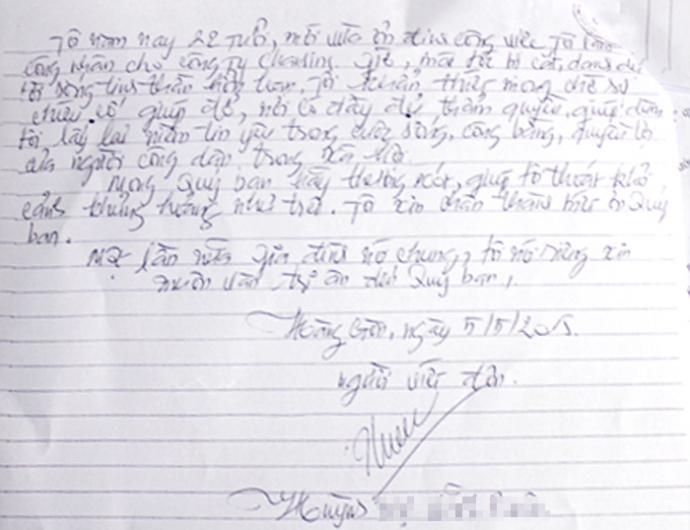 Tôi năm nay 22 tuổi, mới vừa ổn định công việc, tôi làm
công nhân cho công ty Cheasing. Giờ, mất tất cả, danh dự
đời sống tinh thần hỗn loạn. Tôi khẩn thiết mong chờ sự
chiếu cố giúp đỡ, nơi có đầy đủ thẩm quyền, giúp dùm
tôi lấy lại niềm tin yêu trong cuộc sống, công bằng, quyền lợi
của người công dân trong xã hội.
Mong Quý ban hãy thương xót, giúp tôi thoát khỏi
cảnh khủng hoảng như trên. Tôi xin chân thành biết ơn Quý
ban.
Một lần nữa gia đình nói chung, tôi nói riêng xin
muôn vàn tri ân đến Quý ban.
ngày 5/5/2015.
Người viết đơn.
Huỳnh